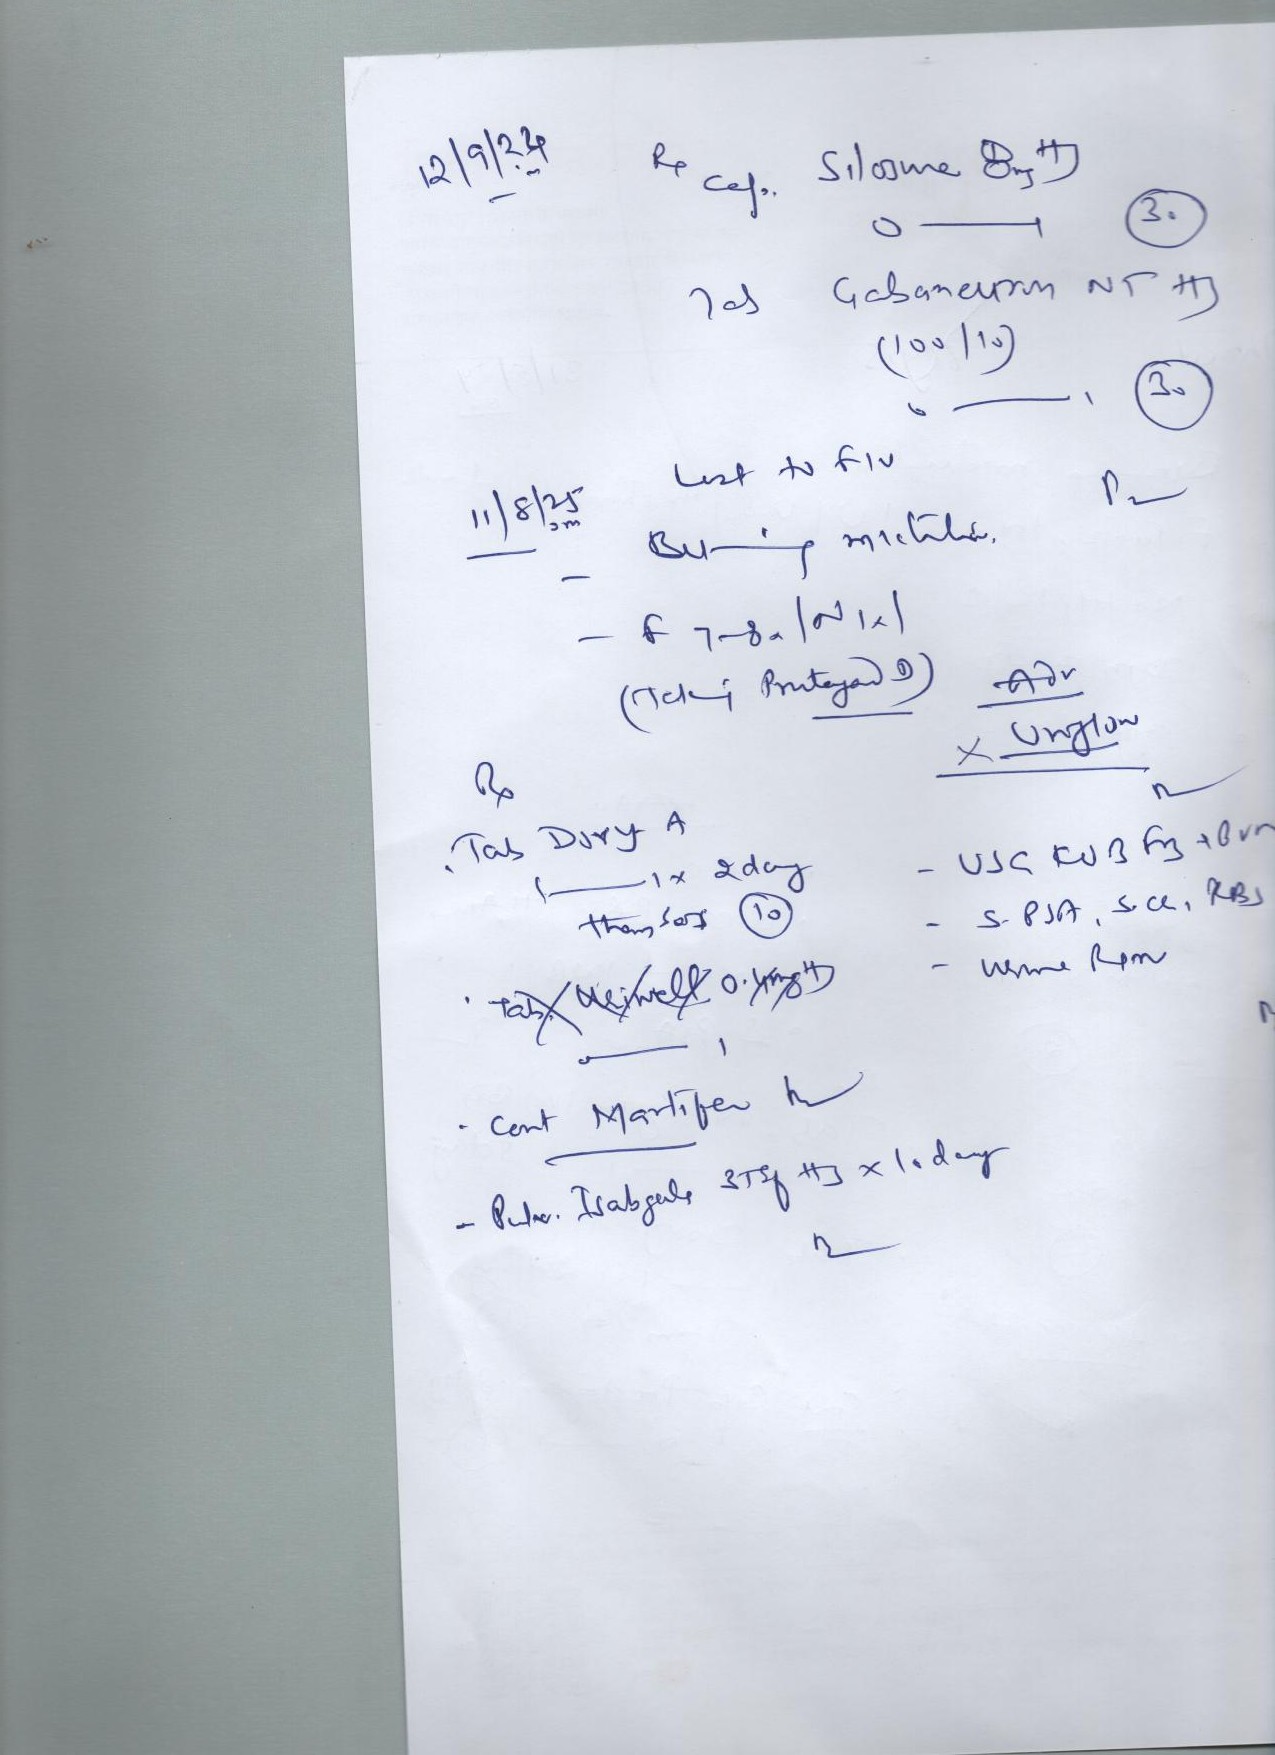 12/9/24
Rx Cap. Silosure 8mg HS
0 — 1 (30)
Tab Gabaneuron NT HS
(100/10)
0 — 1 (30)
11/8/25
Lost to F/U
Burning micturition.
- F 7-8x/N 1x/
Adv
x Uroflow
Rx
. Tab A
1 — 1 x 2 day
then sos (10)
- USG KUB +
- S. PSA, S. Cr, RBS
- Urine R/m
. Tab. 0.4mg HS
0 — 1
. Cont
- Pulv. Isabgula 3 Tsf HS x 10 day